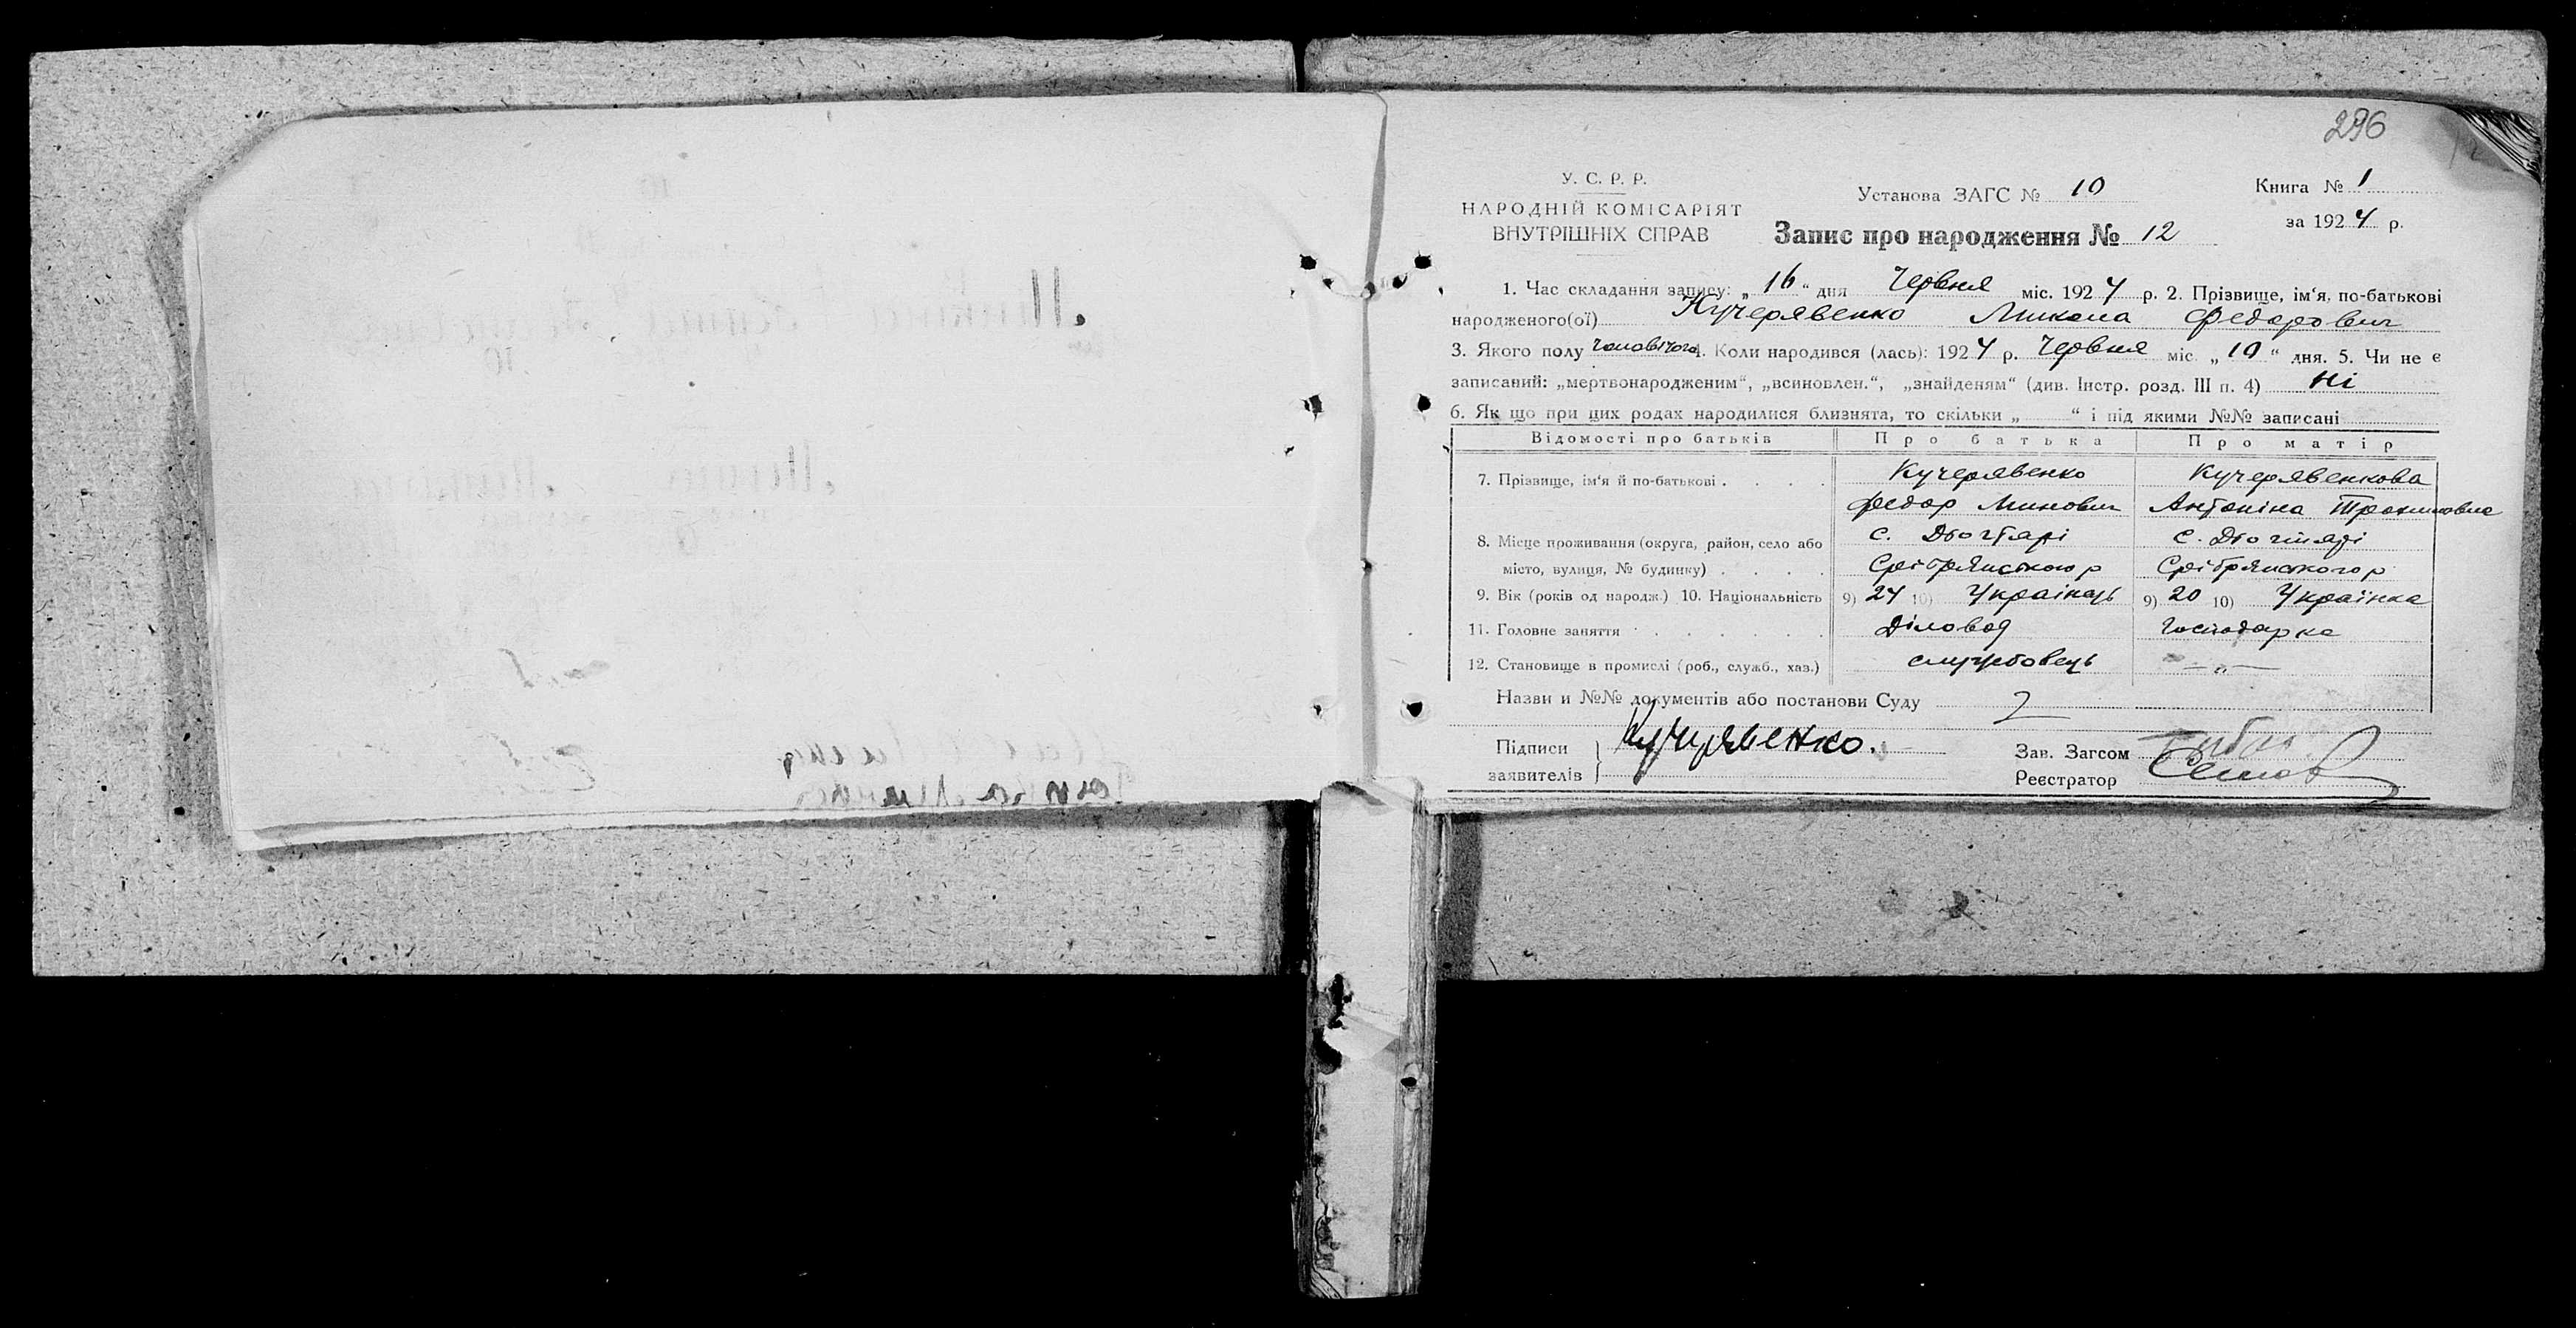 296
У. С. Р. Р.
НАРОДНІЙ КОМІСАРІЯТ
ВНУТРІШНІХ СПРАВ
Установа ЗАГС № 10
Книга № 1
за 1924 р.
Запис про народження № 12
1. Час складання запису: „16“ дня Червня міс. 1924 р. 2. Прізвище, ім'я, по-батькові
народженого(ої) Кучерявенко Микола Федорович
3. Якого полу чоловічого 4. Коли народився (лась): 1924 р. Червня міс. „10“ дня. 5. Чи не є
записаний: „мертвонародженим“, „всиновлен.“, „знайденям“ (див. Інстр. розд. III п. 4) Ні
6. Як що при цих родах народилися близнята, то скільки „ “ і під якими №№ записані
Відомості про батьків Про батька Про матір
7. Прізвище, ім'я й по-батькові . . . . Кучерявенко Кучерявенкова
Федор Минович Антоніна
8. Місце проживання (округа, район, село або с. Дьогтярі с. Дьогтярі
місто, вулиця, № будинку) . . . . Срібрянського р Срібрянского р
9. Вік (років од народж.) 10. Національність 9) 24 10) Українець 9) 20 10) Українка
11. Головне заняття Діловод Господарка
12. Становище в промислі (роб., служб., хаз.) службовець — „ —
Назви и №№ документів або постанови Суду 2
Підписи Кучерявенко.
заявителів
Зав. Загсом
Реєстратор